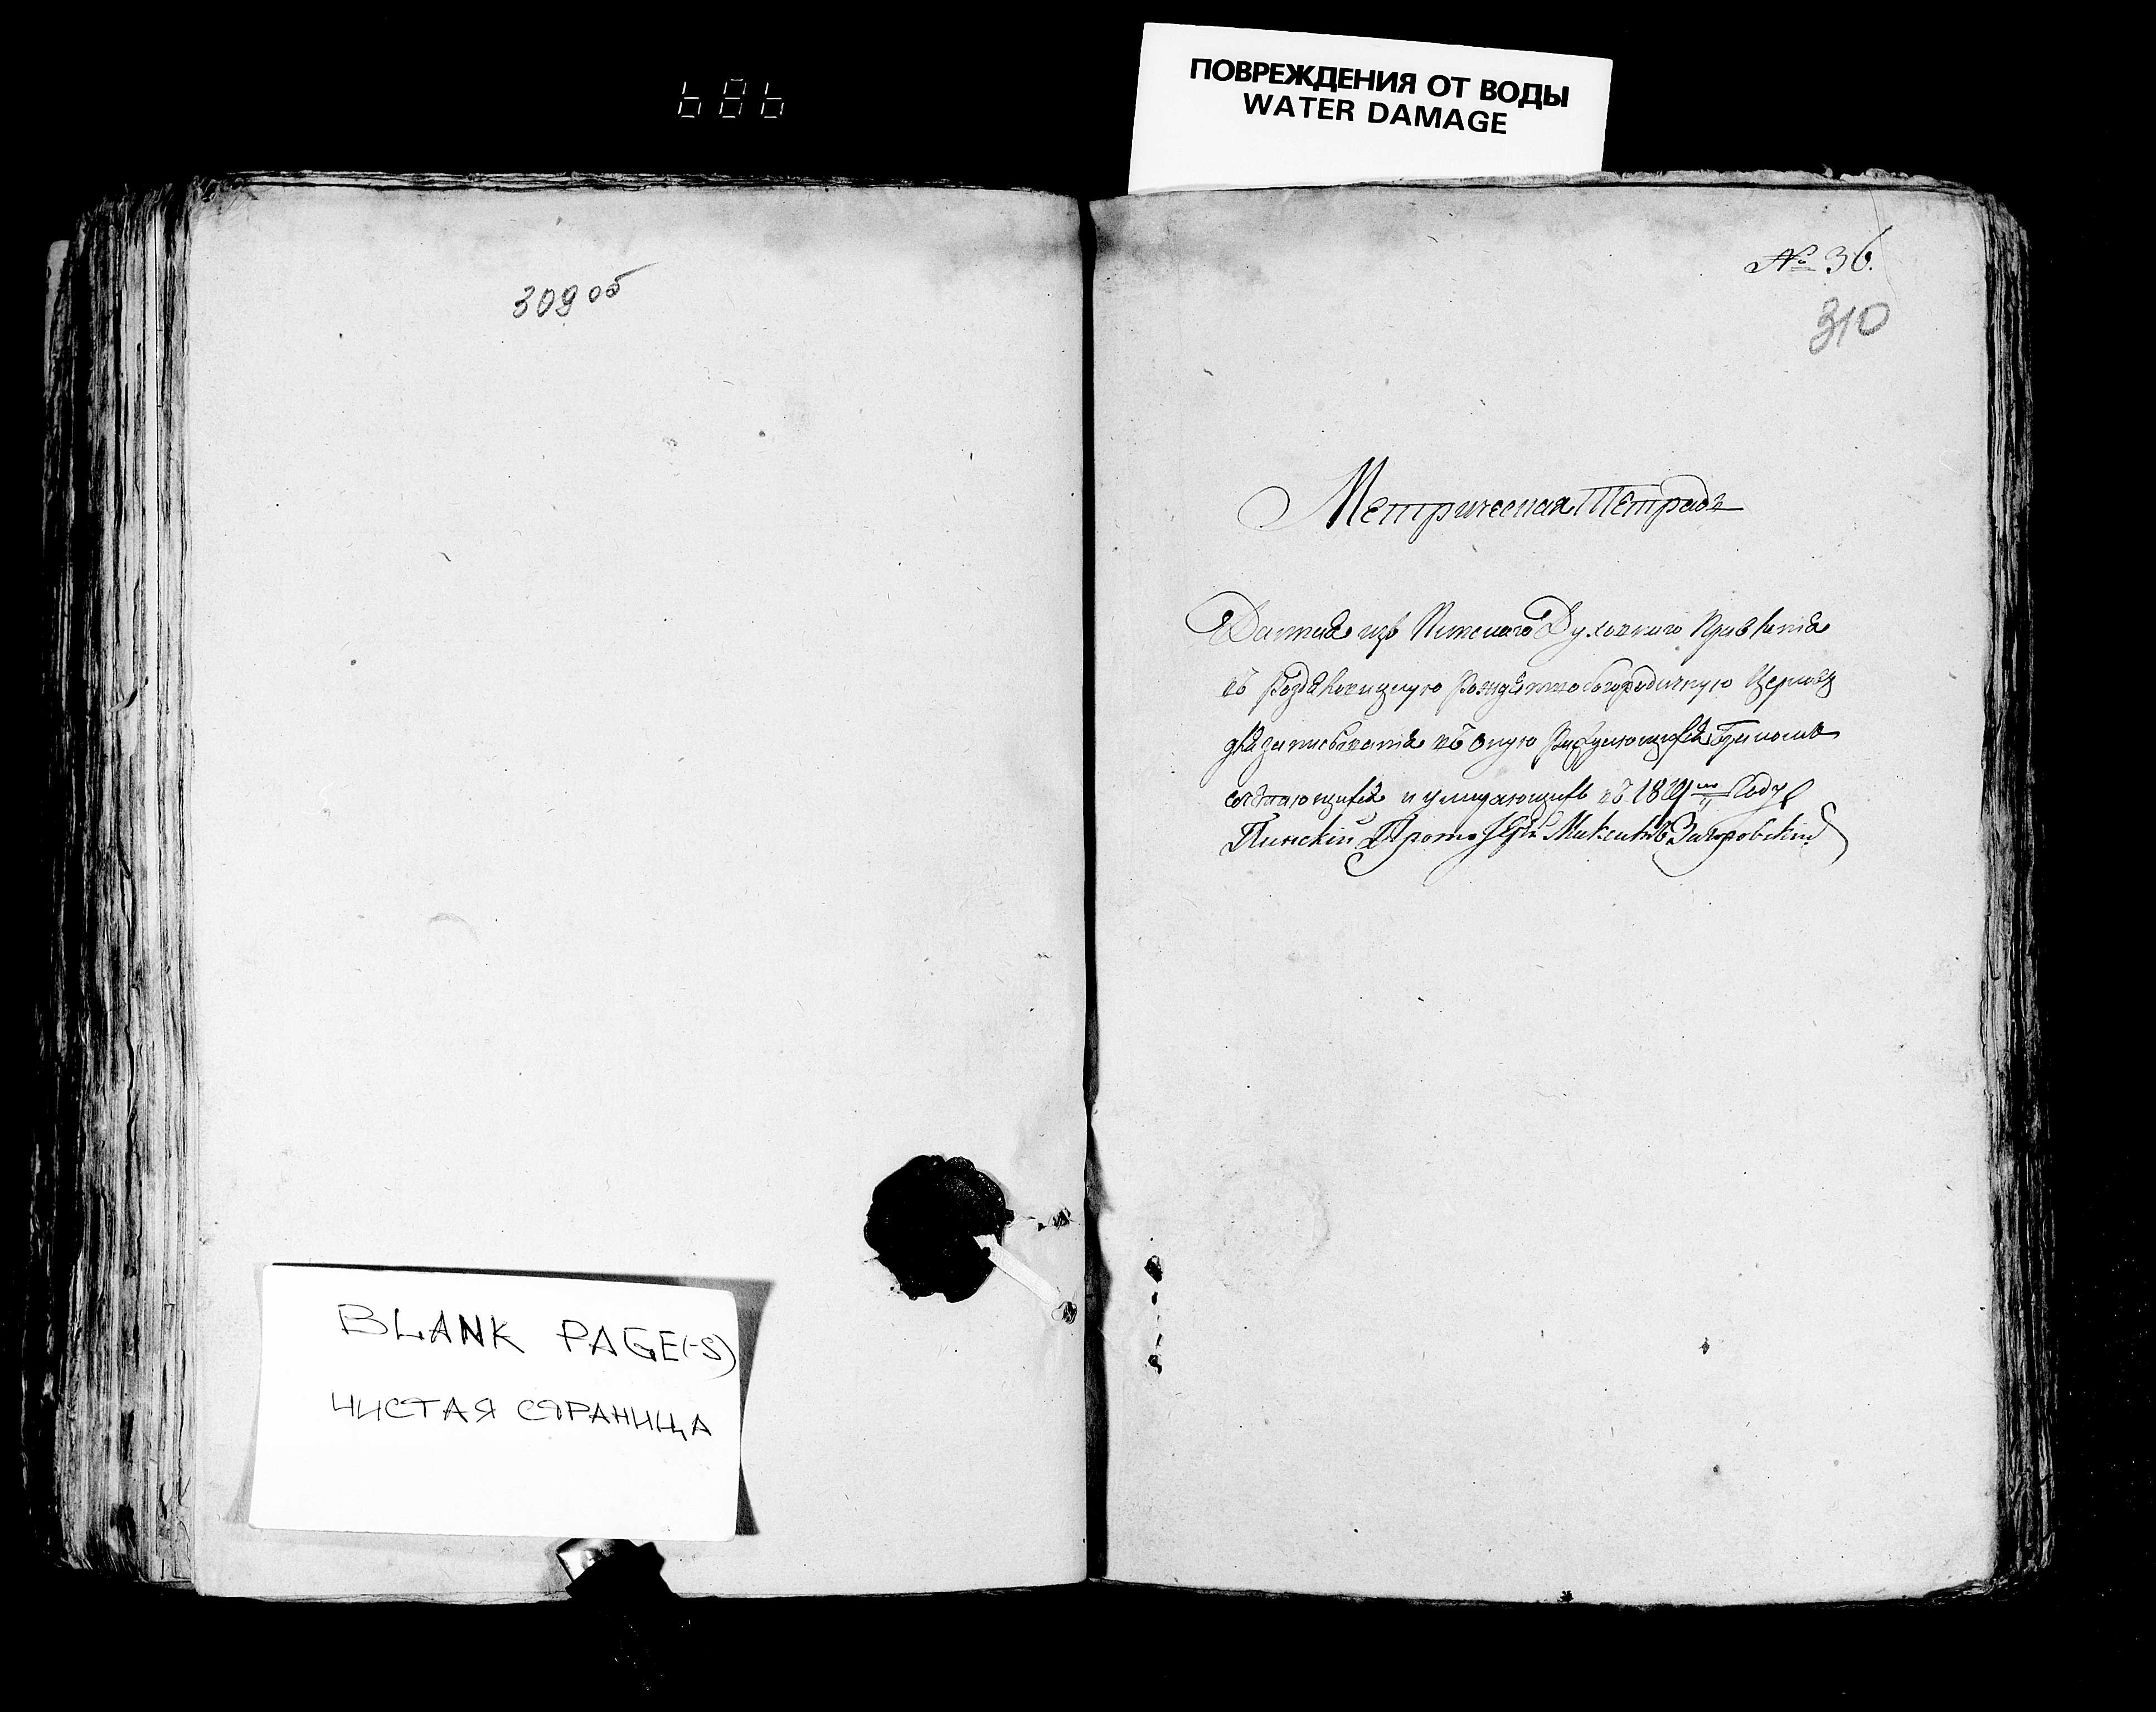 686
ПОВРЕЖДЕНИЯ ОТ ВОДЫ
WATER DAMAGE
309 об
№ 36.
310
Метрическая Тетрадь
Данная изъ Пинскаго Духовнаго Правленія
въ Рождество богородичную Церковь
для записыванія въ оную
и умирающихъ въ Году
Пинскій Прото Іерей
BLANK PAGE(-S)
ЧИСТАЯ СТРАНИЦА